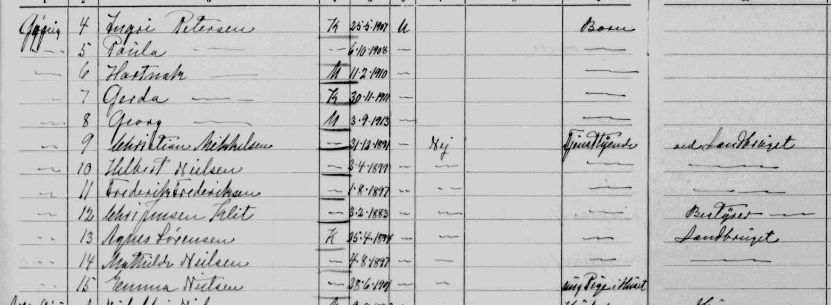 4 Ingri Petersen K 25-5-1907 U Barn
5 Paula — 6-10-1908 — —
6 Hartvik — M 11-2-1910 — —
7 Gerda — K 30-11-1911 — —
8 Georg — M 3-9-1913 — —
9 Christian Mikkelsen — 21-12-1891 — Nej Tjenestetyende ved Landbruget
10 Hilbert Nielsen — 2-4-1899 — — — —
11 Frederik Frederiksen — 1-8-1897 — — — —
12 Chr. Jensen Klit — 3-2-1883 — — — Bestyrer —
13 Agnes Sørensen K 25-4-1898 — — — Landbruget
14 Mathilde Nielsen — 4-8-1897 — — — —
15 Emma Nielsen — — — ung Pige i Huset